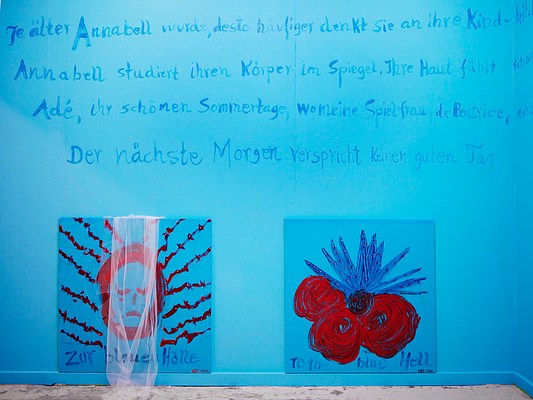 Je älter Annabell wurde, desto häufiger denkt sie an ihre Kind-
Annabell studiert ihren Körper im Spiegel. Ihre Haut fährt
Adé, ihr schönen Sommertage, wo meine Spielfrau, die Beatrice,
Der nächste Morgen verspricht keinen guten Tag
Zur blauen Hölle
To the Blue Hell